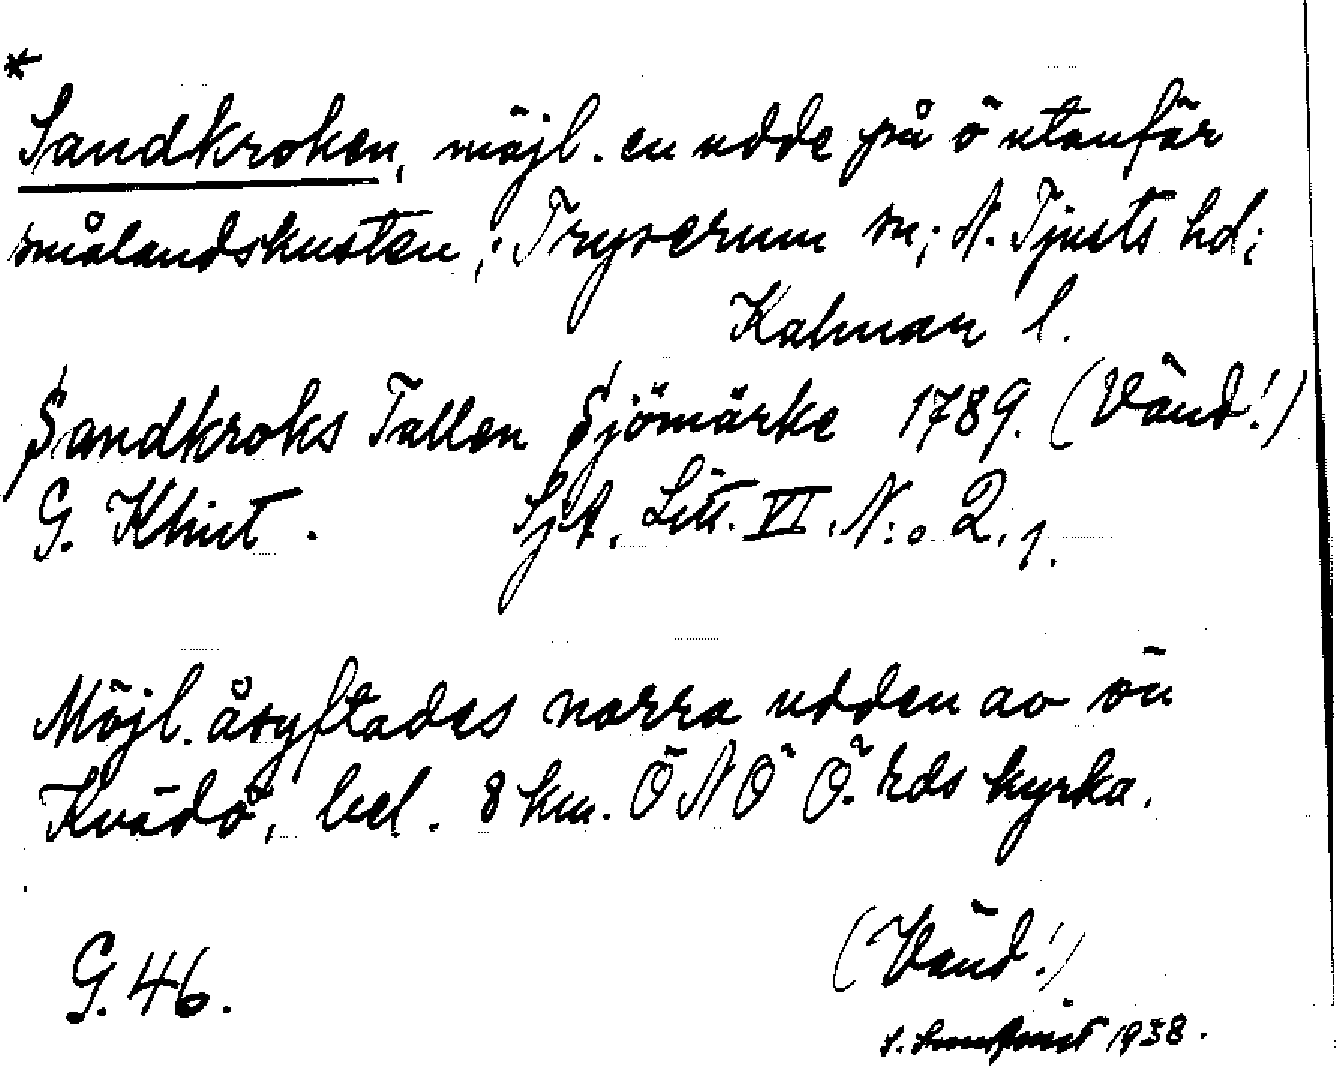 *
Sandkroken, möjl. en udde på ö utanför
smålandskusten; Tryserum sn; N. Tjusts hd;
Kalmar l.
Sandkroks Tallen Sjömärke 1789. (Vänd!)
G. Klint. Sjk. Litt. VI. N:o 2,1.
Möjl. åsyftades norra udden av ön
Kvädö, bel. 8 km. ÖNÖ Ö. Eds kyrka.
(Vänd!)
G. 46.
1938.